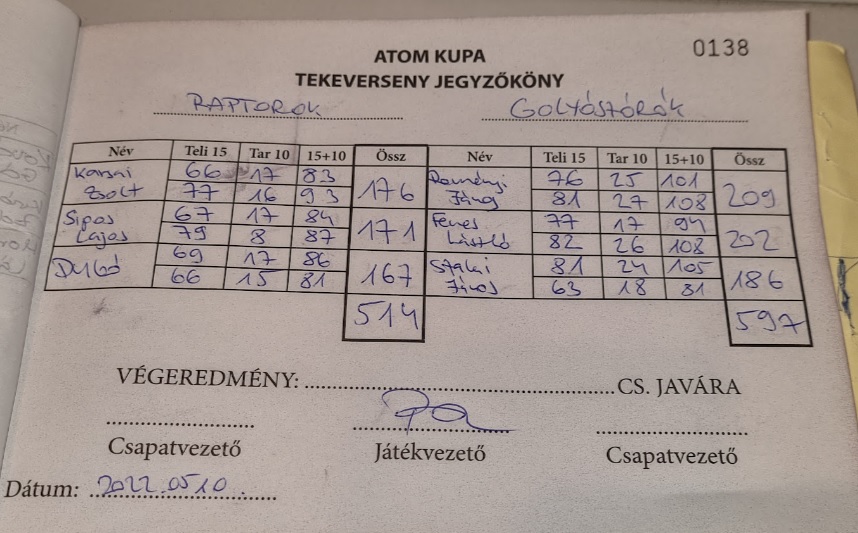 0138
ATOM KUPA
TEKEVERSENY JEGYZŐKÖNY
RAPTOROK GOLYÓSTÓRÁK
Név Teli 15 Tar 10 15+10 Össz Név Teli 15 Tar 10 15+10 Össz
66 17 83 176 76 25 101 209
Zsolt 77 16 93 János 81 27 108
Sipos 67 17 84 171 77 17 94 202
Lajos 79 8 87 László 82 26 108
Dubó 69 17 86 167 81 24 105 186
66 15 81 János 63 18 81
514 597
VÉGEREDMÉNY: CS. JAVÁRA
Csapatvezető Játékvezető Csapatvezető
Dátum: 2022.05.10.